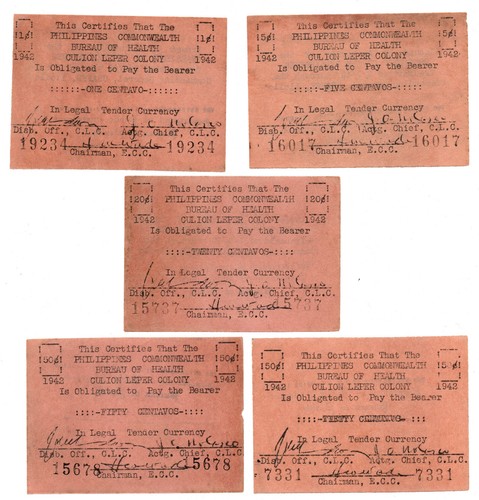 This Certifies That The
1¢ PHILIPPINES COMMONWEALTH 1¢
BUREAU OF HEALTH
1942 CULION LEPER COLONY 1942
Is Obligated to Pay the Bearer
::::::-ONE CENTAVO-::::::
In Legal Tender Currency
Disb. Off., C.L.C. Actg. Chief, C.L.C.
19234 19234
Chairman, E.C.C.
This Certifies That The
5¢ PHILIPPINES COMMONWEALTH 5¢
BUREAU OF HEALTH
1942 CULION LEPER COLONY 1942
Is Obligated to Pay the Bearer
:::::-FIVE CENTAVOS-:::::
In Legal Tender Currency
Disb. Off., C.L.C. Actg. Chief, C.L.C.
16017 16017
Chairman, E.C.C.
This Certifies That The
20¢ PHILIPPINES COMMONWEALTH 20¢
BUREAU OF HEALTH
1942 CULION LEPER COLONY 1942
Is Obligated to Pay the Bearer
::::-TWENTY CENTAVOS-::::
In Legal Tender Currency
Disb. Off., C.L.C. Actg. Chief, C.L.C.
15737 15737
Chairman, E.C.C.
This Certifies That The
50¢ PHILIPPINES COMMONWEALTH 50¢
BUREAU OF HEALTH
1942 CULION LEPER COLONY 1942
Is Obligated to Pay the Bearer
::::-FIFTY CENTAVOS-::::
In Legal Tender Currency
Disb. Off., C.L.C. Actg. Chief, C.L.C.
15678 15678
Chairman, E.C.C.
This Certifies That The
50¢ PHILIPPINES COMMONWEALTH 50¢
BUREAU OF HEALTH
1942 CULION LEPER COLONY 1942
Is Obligated to Pay the Bearer
CENTAVOS
In Legal Tender Currency
Disb. Off., C.L.C. Actg. Chief, C.L.C.
7331 7331
Chairman, E.C.C.